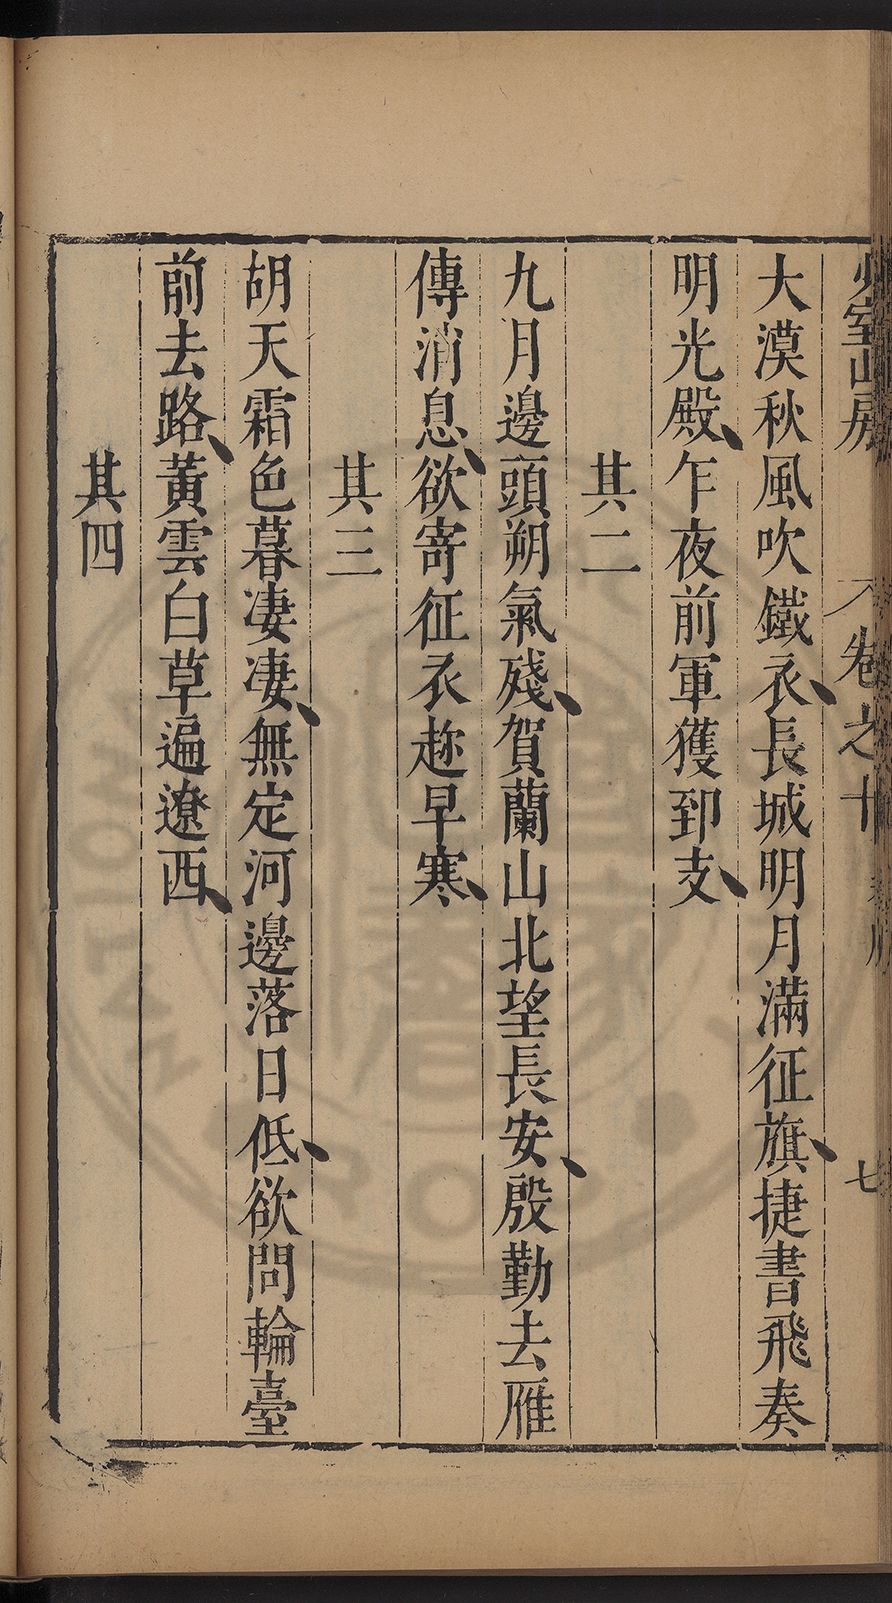 室山房 卷之十 七
大漠秋風吹鐵衣、長城明月滿征旗、捷書飛奏
明光殿、乍夜前軍獲郅支、
其二
九月邊頭朔氣殘、賀蘭山北望長安、殷勤去雁
傳消息、欲寄征衣趂早寒、
其三
胡天霜色暮凄凄、無定河邊落日低、欲問輪臺
前去路、黃雲白草遍遼西、
其四